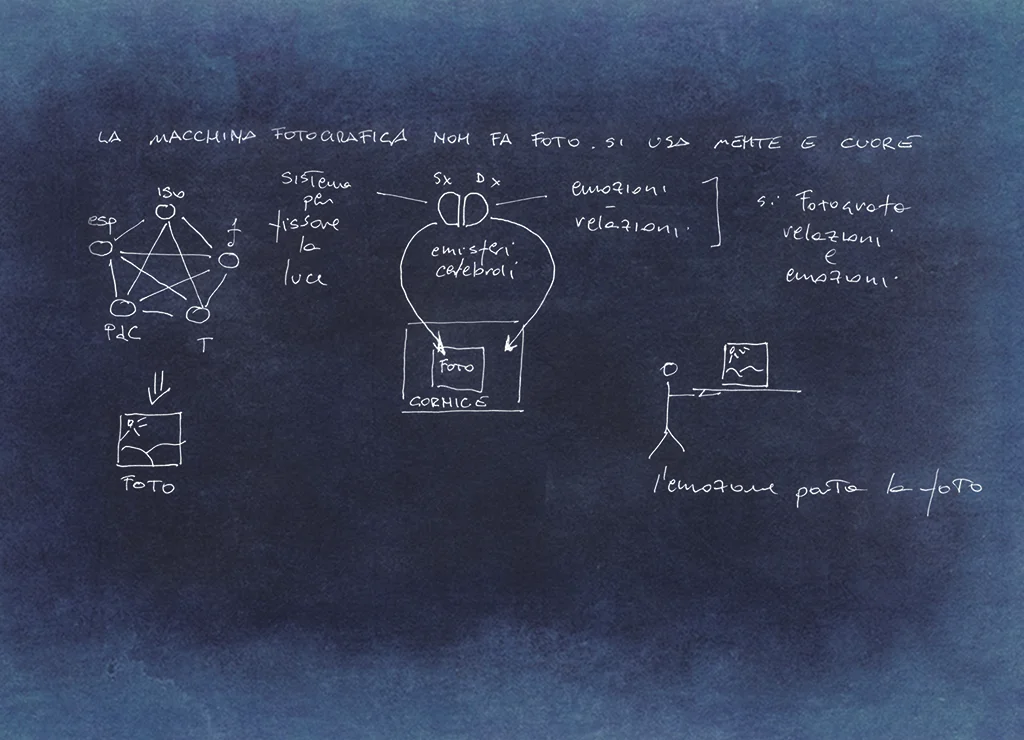 LA MACCHINA FOTOGRAFICA NON FA FOTO. SI USA MENTE E CUORE
iso
esp
f
PdC
T
FOTO
SISTema
per
fissare
la
luce
Sx Dx
emisferi
cerebrali
FOTO
CORNICE
emozioni
-
relazioni.
si Fotografa
relazioni
e
emozioni.
l'emozione porta la foto